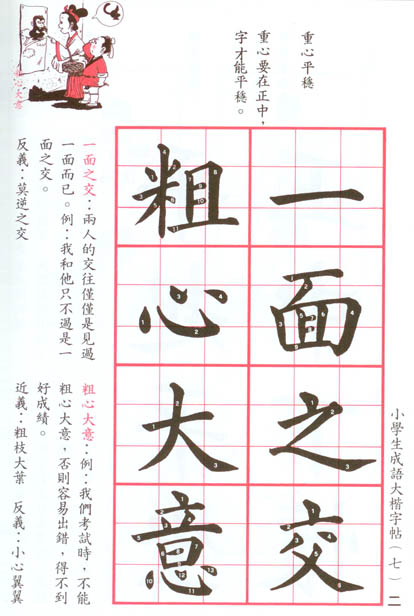 小學生成語大楷字帖（七）
一面之交
粗心大意
重心平穩
重心要在正中，
字才能平穩。
粗心大意
一面之交：兩人的交往僅僅是見過
一面而已。例：我和他只不過是一
面之交。
反義：莫逆之交
粗心大意：例：我們考試時，不能
粗心大意，否則容易出錯，得不到
好成績。
近義：粗枝大葉　反義：小心翼翼